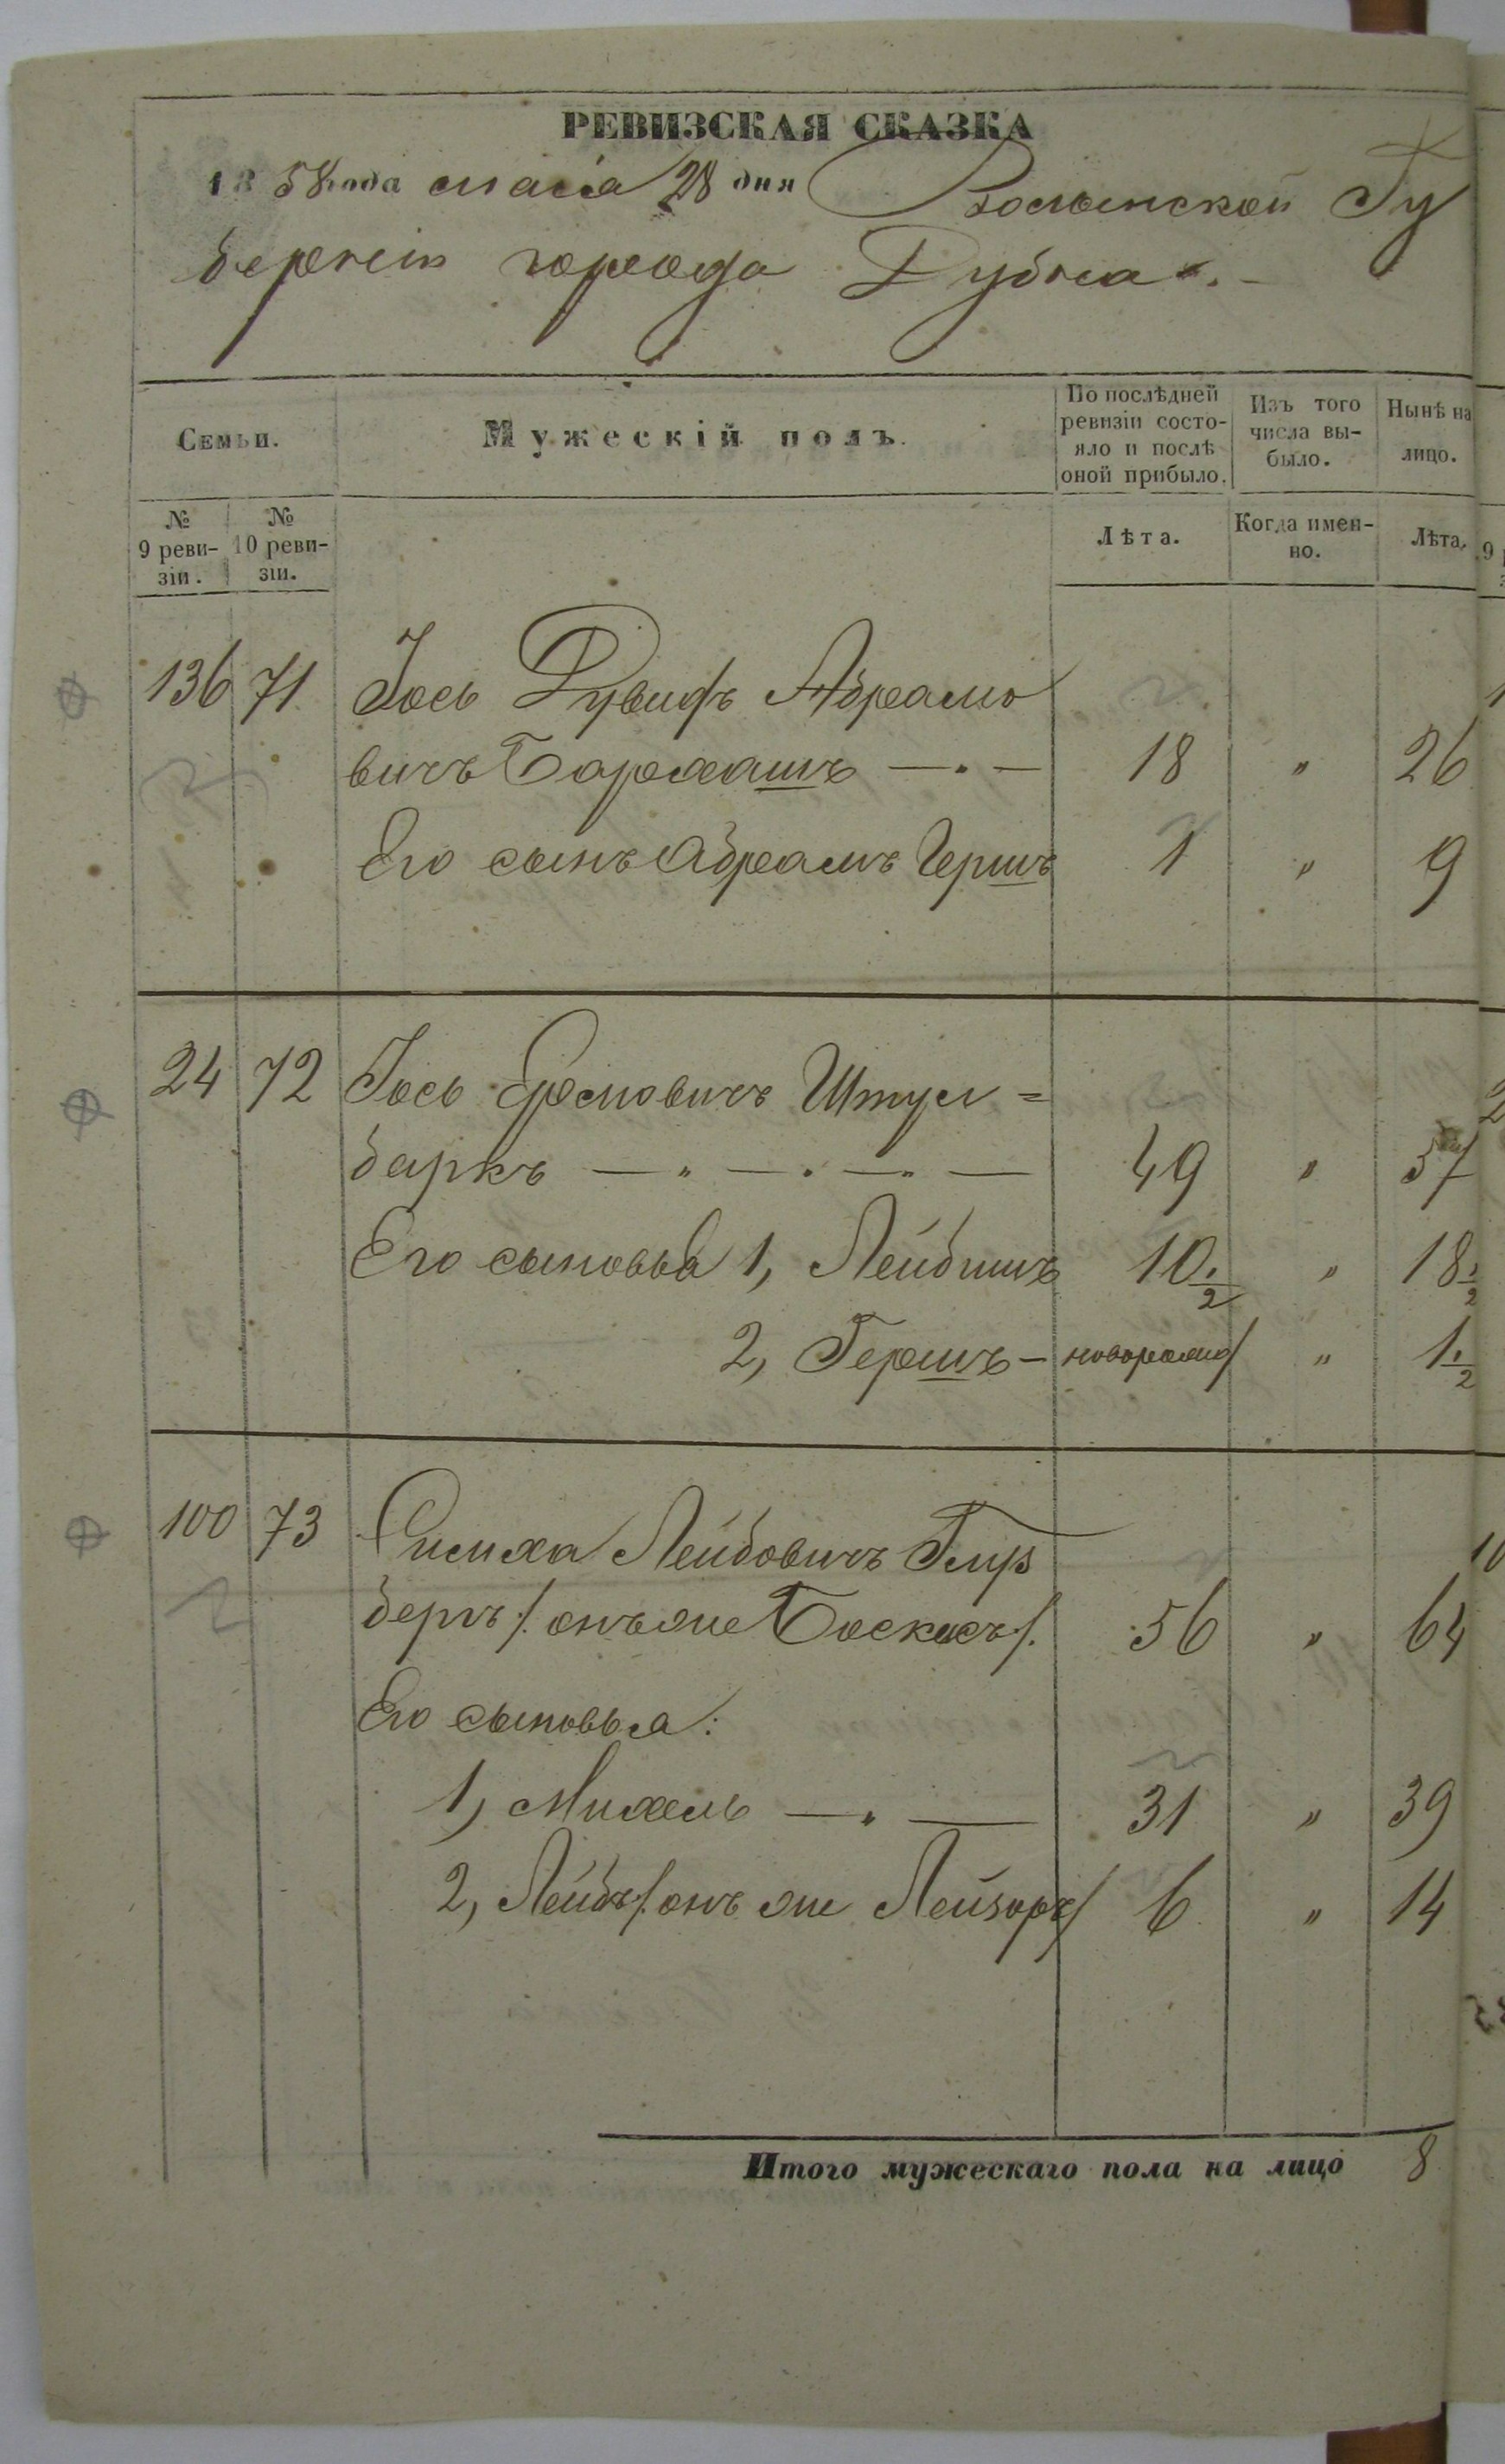 РЕВИЗСКАЯ СКАЗКА
1858 года маія 28 дня Волынской Гу
берніи города Дубна
Семьи.
Мужескій полъ.
По послѣдней
ревизіи состо-
яло и послѣ
оной прибыло.
Изъ того
числа вы-
было.
Нынѣ на
лицо.
№
9 реви-
зіи.
№
10 реви-
зіи.
Лѣта.
Когда имен-
но.
Лѣта.
136 71 Іось Дувидъ Абрамо
вичъ Бармашъ 18 " 26
Его сынъ Абрамъ Гершъ 1 " 9
24 72 Іось Еремовичъ Штул=
баркъ 49 " 57
Его сыновья 1, Лейбишъ 10 1/2 " 18 1/2
2, Гершъ - новорожд " 1 1/2
100 73 Симха Лейбовичъ
бергъ /онъ же 56 " 64
Его сыновья:
1, Михель 31 " 39
2, Лейбъ /онъ же Лейзоръ/ 6 " 14
Итого мужескаго пола на лицо 8